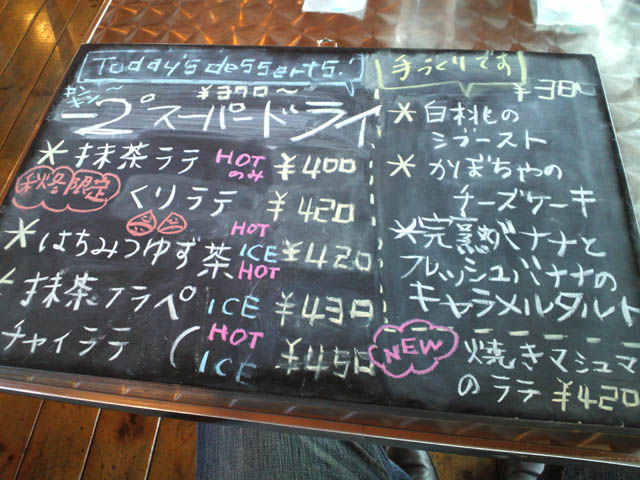 Today's desserts!
キンキン〜
¥370〜
-2°スーパードライ
*抹茶ラテ HOTのみ ¥400
秋冬限定 くりラテ ¥420
*はちみつゆず茶 HOT ICE ¥420
*抹茶フラペ HOT ICE ¥430
チャイラテ ( HOT ICE ¥450
手づくりです
¥38
*白桃の
ジブースト
*かぼちゃの
チーズケーキ
*完熟バナナと
フレッシュバナナの
キャラメルタルト
NEW 焼きマシュマ
のラテ ¥420